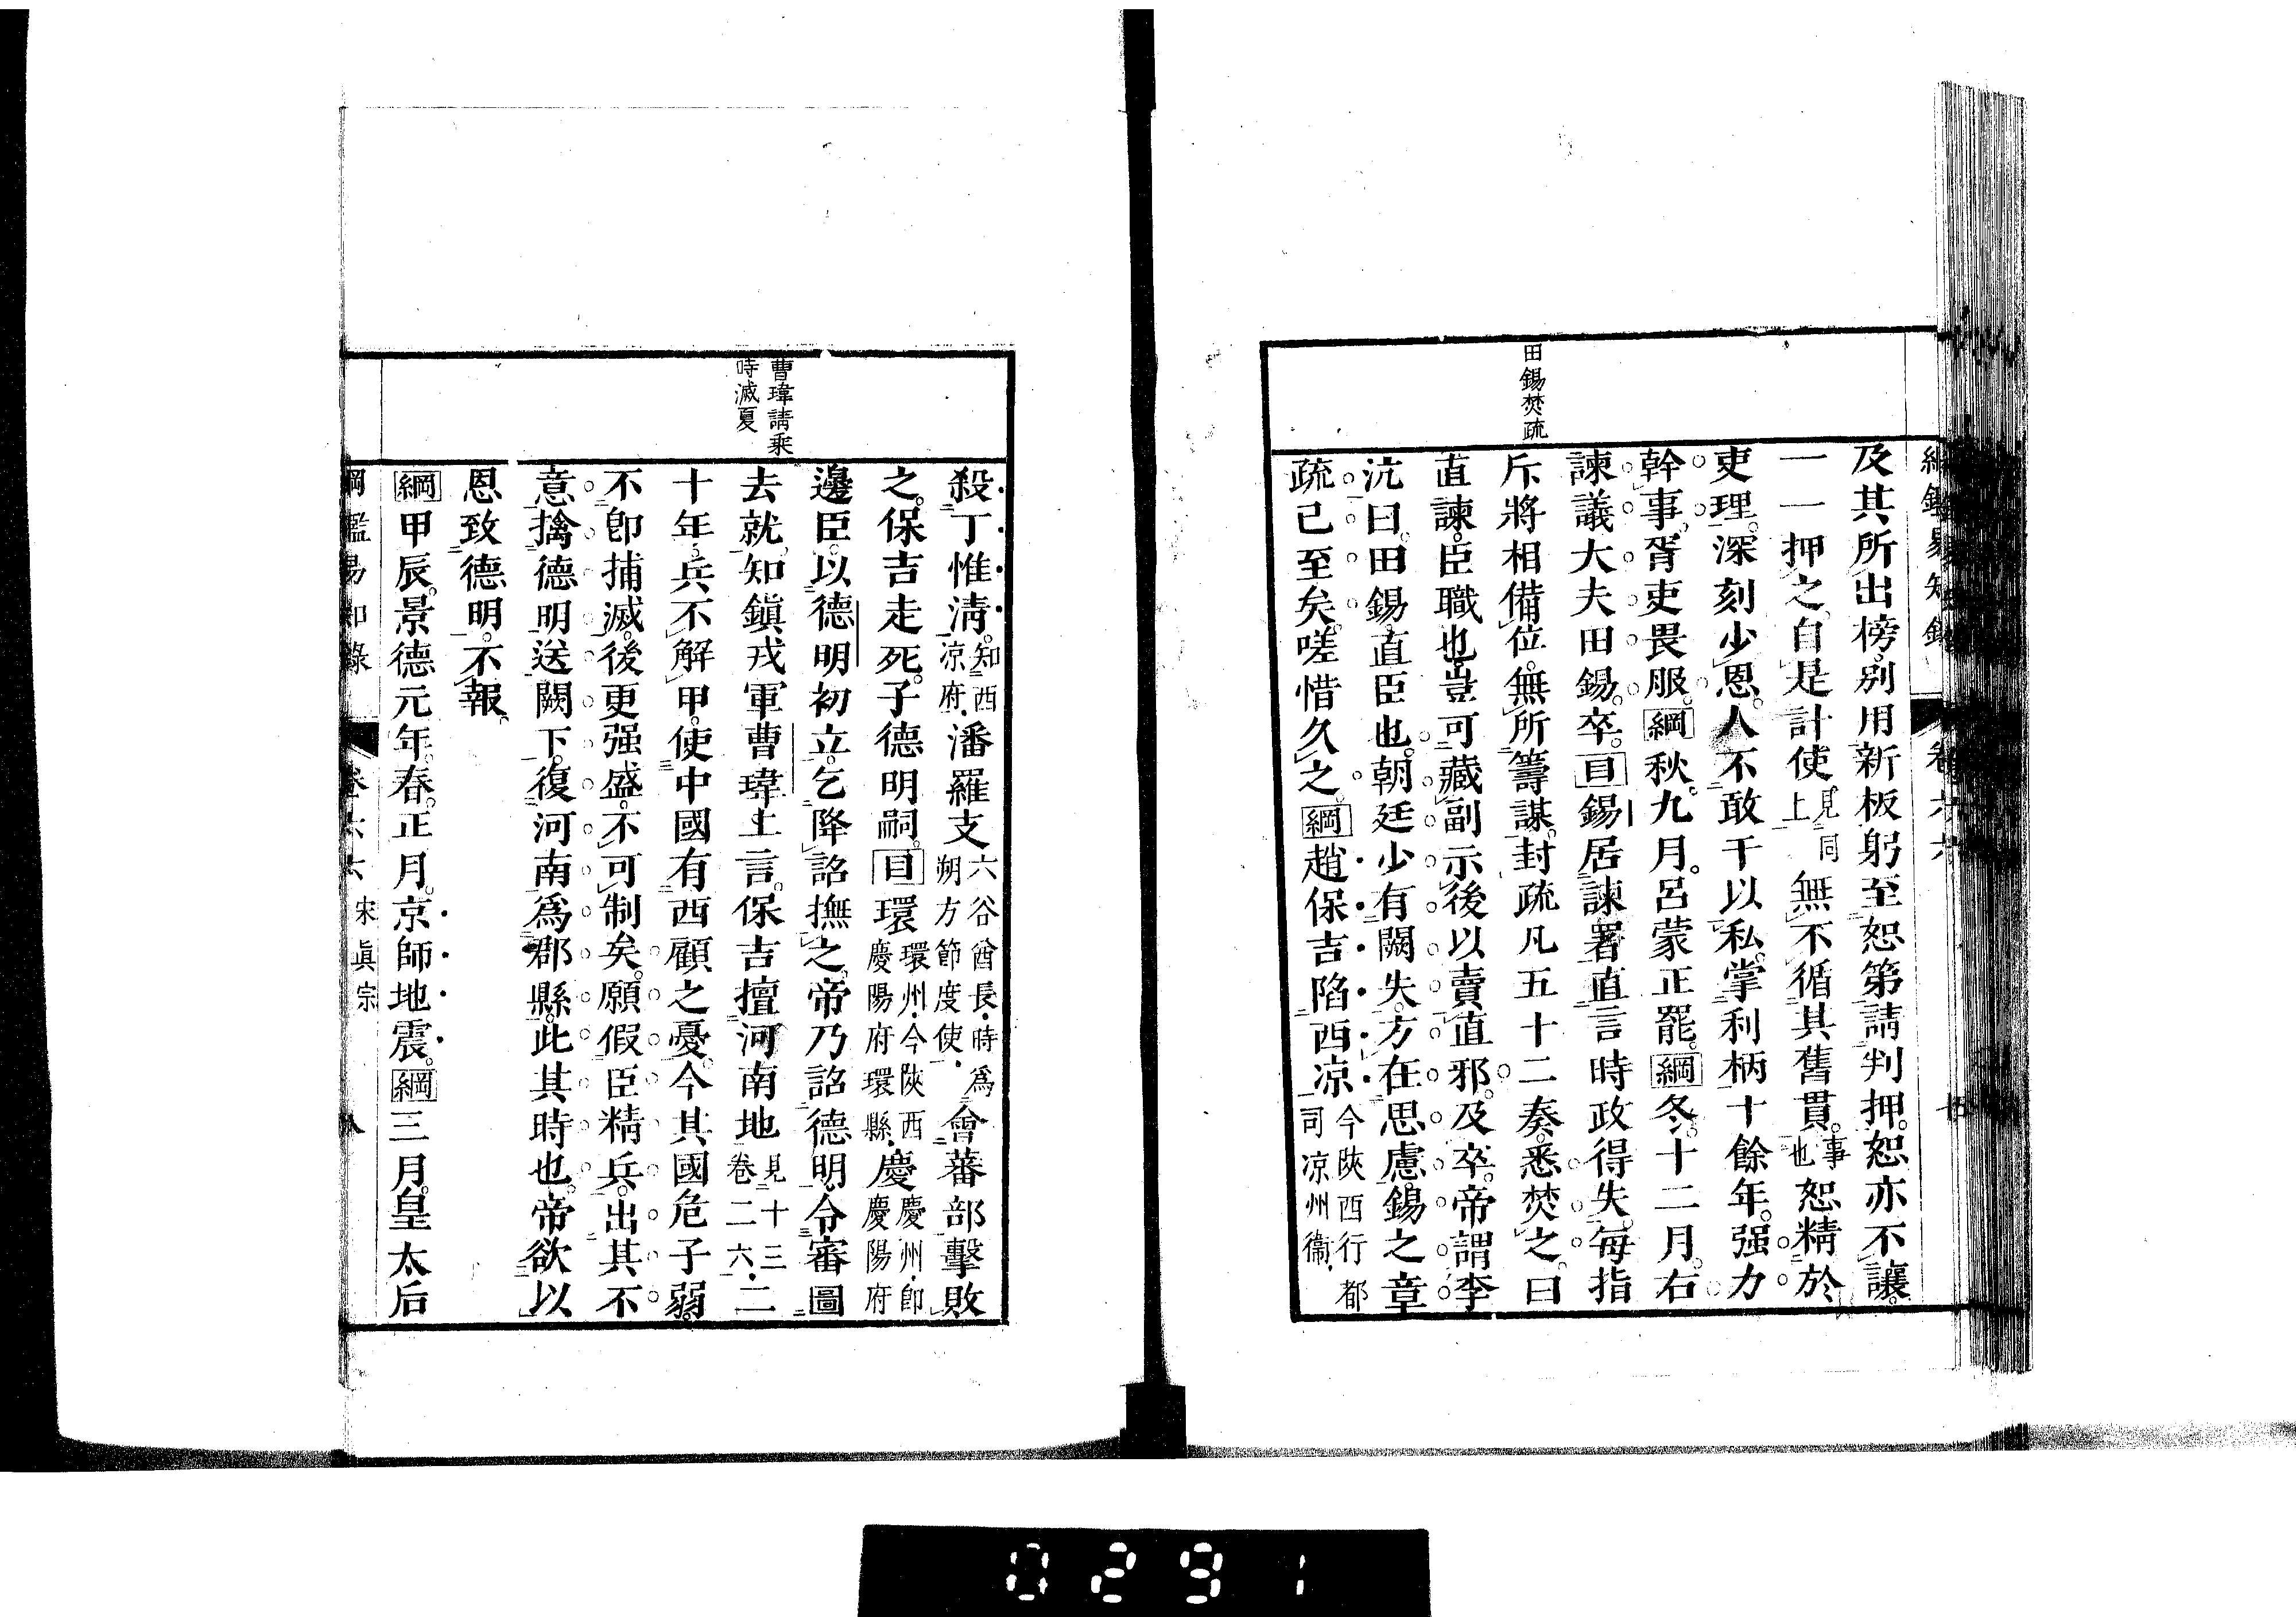 田錫焚疏
及其所出榜別用新板躬至恕第請判押恕亦不讓
一一押之自是計使見上同無不循其舊貫事也恕精於
吏理深刻少恩人不敢干以私掌利柄十餘年强力
幹事胥吏畏服綱秋九月呂蒙正罷綱冬十二月右
諫議大夫田錫卒目錫居諫署直言時政得失每指
斥將相備位無所籌謀封疏凡五十二奏悉焚之曰
直諫臣職也豈可藏副示後以賣直邪及卒帝謂李
沆曰田錫直臣也朝廷少有闕失方在思慮錫之章
疏已至矣嗟惜久之綱趙保吉陷西凉今陜西行都司凉州衞
曹瑋請乘
時滅夏
殺丁惟淸知西凉府潘羅支六谷酋長時爲朔方節度使會蕃部擊敗
之保吉走死子德明嗣目環環州今陜西慶陽府環縣慶慶州卽慶陽府
邊臣以德明初立乞降詔撫之帝乃詔德明令審圖
去就知鎭戎軍曹瑋上言保吉擅河南地見十三卷二六二
十年兵不解甲使中國有西顧之憂今其國危子弱
不卽捕滅後更强盛不可制矣願假臣精兵出其不
意擒德明送闕下復河南爲郡縣此其時也帝欲以
恩致德明不報
綱甲辰景德元年春正月京師地震綱三月皇太后
綱鑑易知錄 卷六六 宋眞宗 八